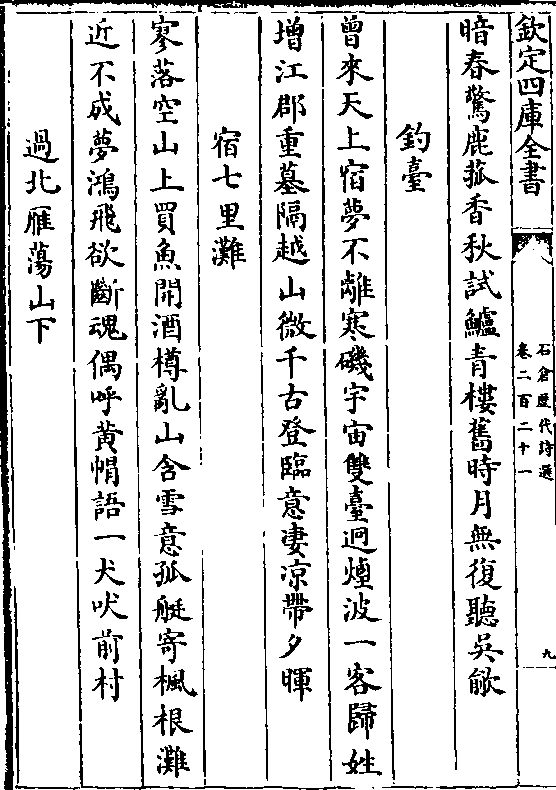 欽定四庫全書
石倉歷代詩選
卷二百二十一
九
暗春驚鹿菰香秋試鱸青樓舊時月無復聽吳歈
釣臺
曾來天上宿夢不離寒磯宇宙雙臺迥煙波一客歸姓
增江郡重墓隔越山微千古登臨意淒凉帶夕暉
宿七里灘
寥落空山上買魚開酒樽亂山含雪意孤艇寄楓根灘
近不成夢鴻飛欲斷魂偶呼黄㡌語一犬吠前村
過北雁蕩山下